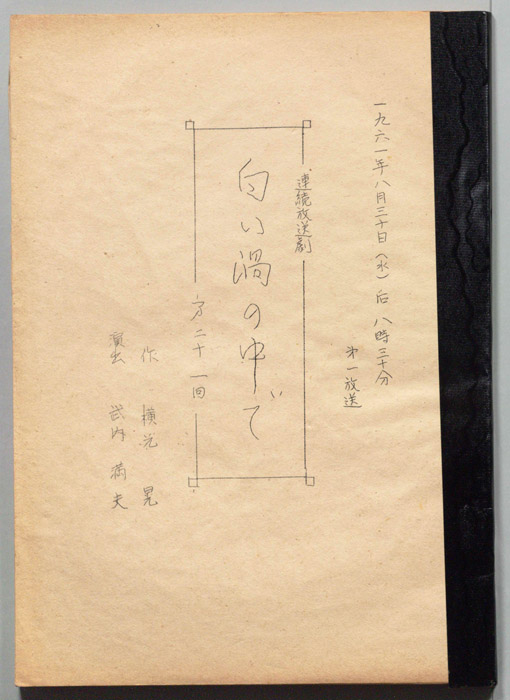 一九六一年八月三十日（水）后 八時三十分
第一放送
連続放送劇
白い渦の中で
第二十一回
作 横光 晃
演出 武内 満夫